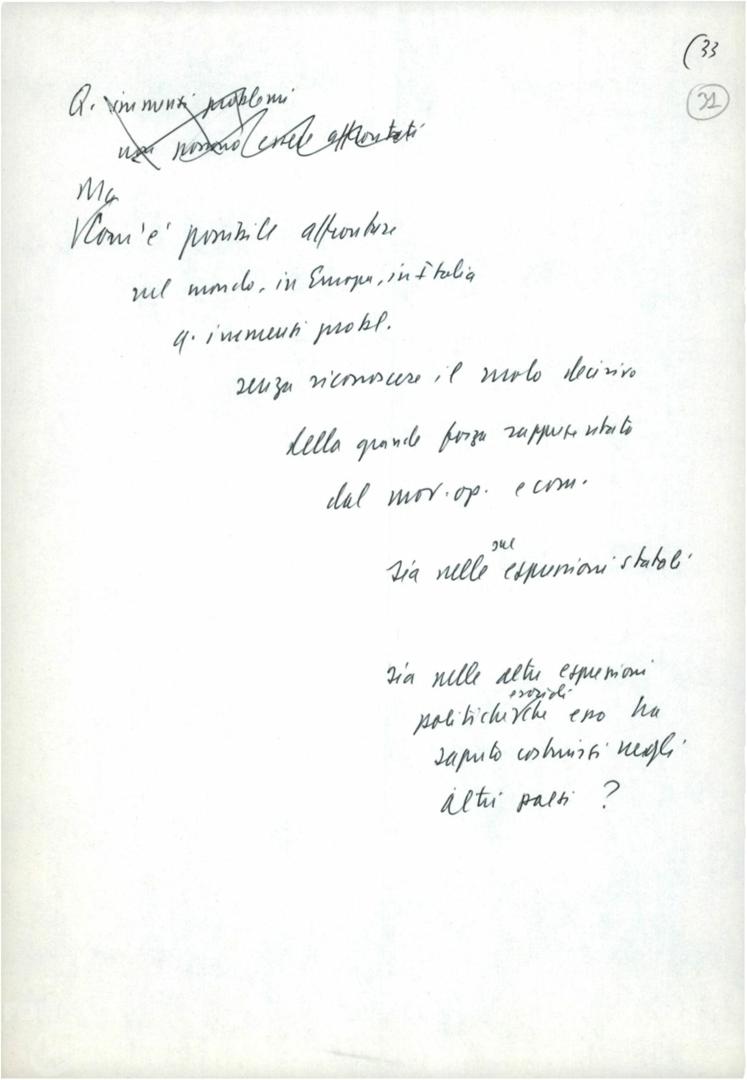 (33
31
Q. immensi problemi
non possono essere affrontati
Ma
Com'è possibile affrontare
nel mondo, in Europa, in Italia
q. immensi probl.
senza riconoscere il ruolo decisivo
della grande forza rappresentata
dal mov. op. e com.
sia nelle sue espressioni statali
sia nelle altre espressioni
politiche e sociali che esso ha
saputo costruirsi negli
altri paesi ?